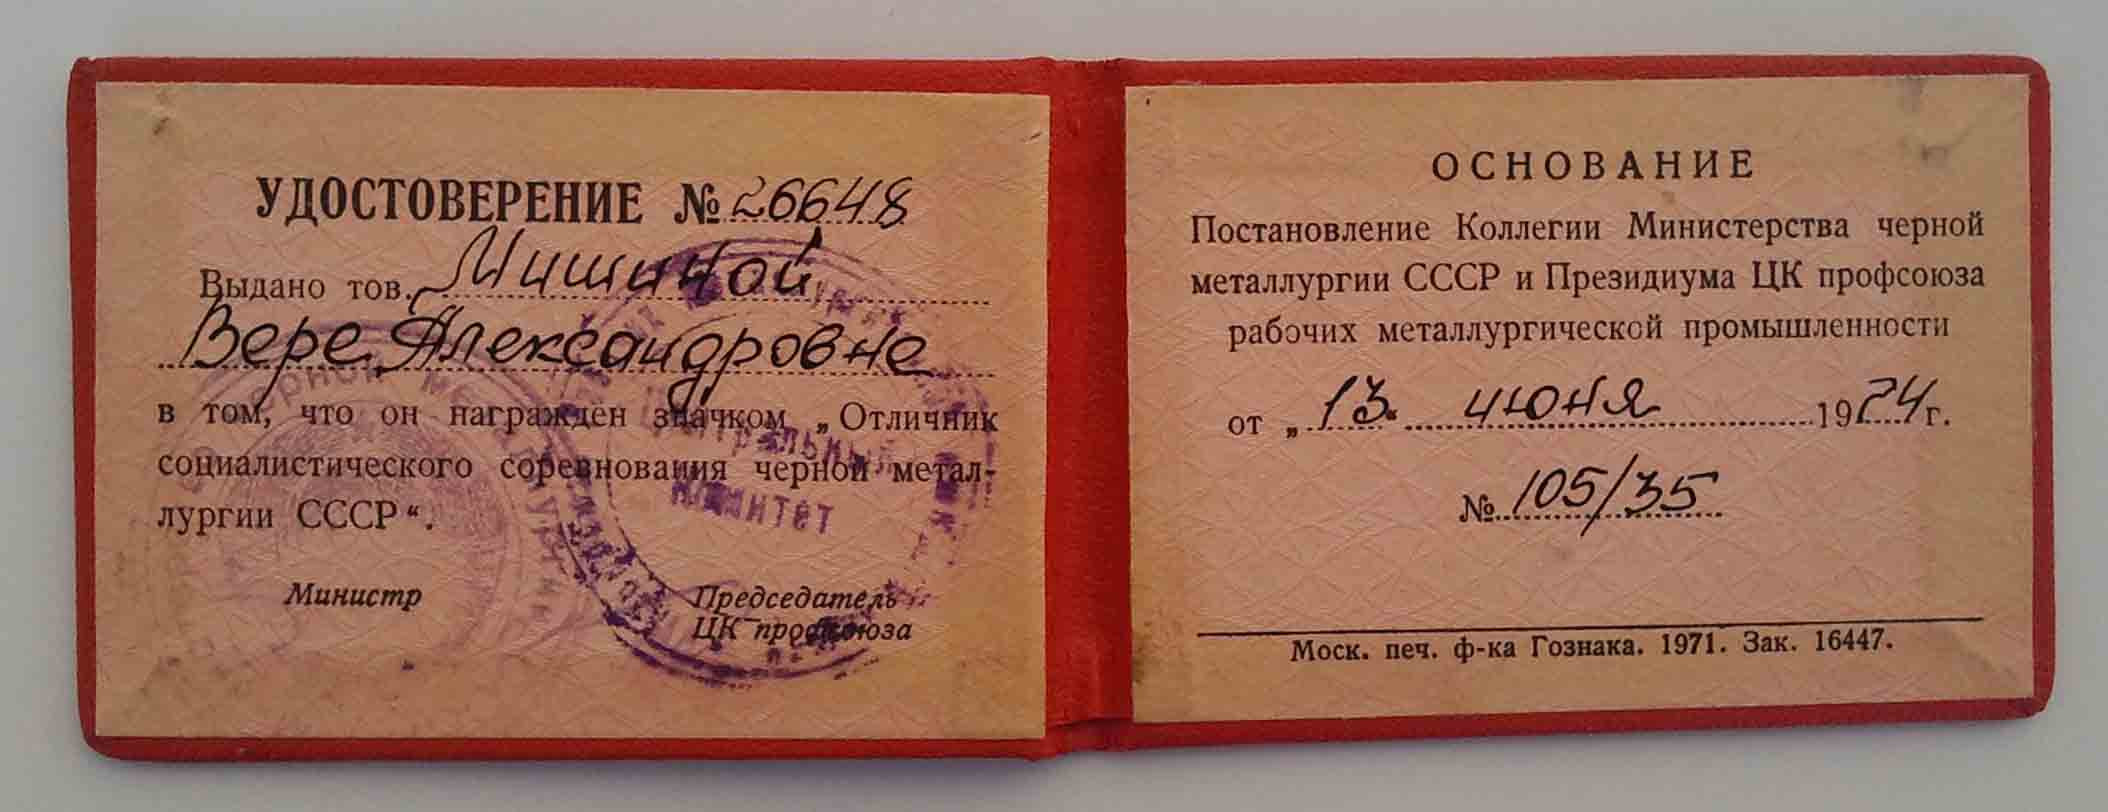 УДОСТОВЕРЕНИЕ № 26648
Выдано тов. Мишиной
Вере Александровне
в том, что он награжден значком „Отличник
социалистического соревнования черной метал-
лургии СССР“.
Министр
Председатель
ЦК профсоюза
Центральный
комитет
ОСНОВАНИЕ
Постановление Коллегии Министерства черной
металлургии СССР и Президиума ЦК профсоюза
рабочих металлургической промышленности
от „13“ июня 1974 г.
№ 105/35
Моск. печ. ф-ка Гознака. 1971. Зак. 16447.